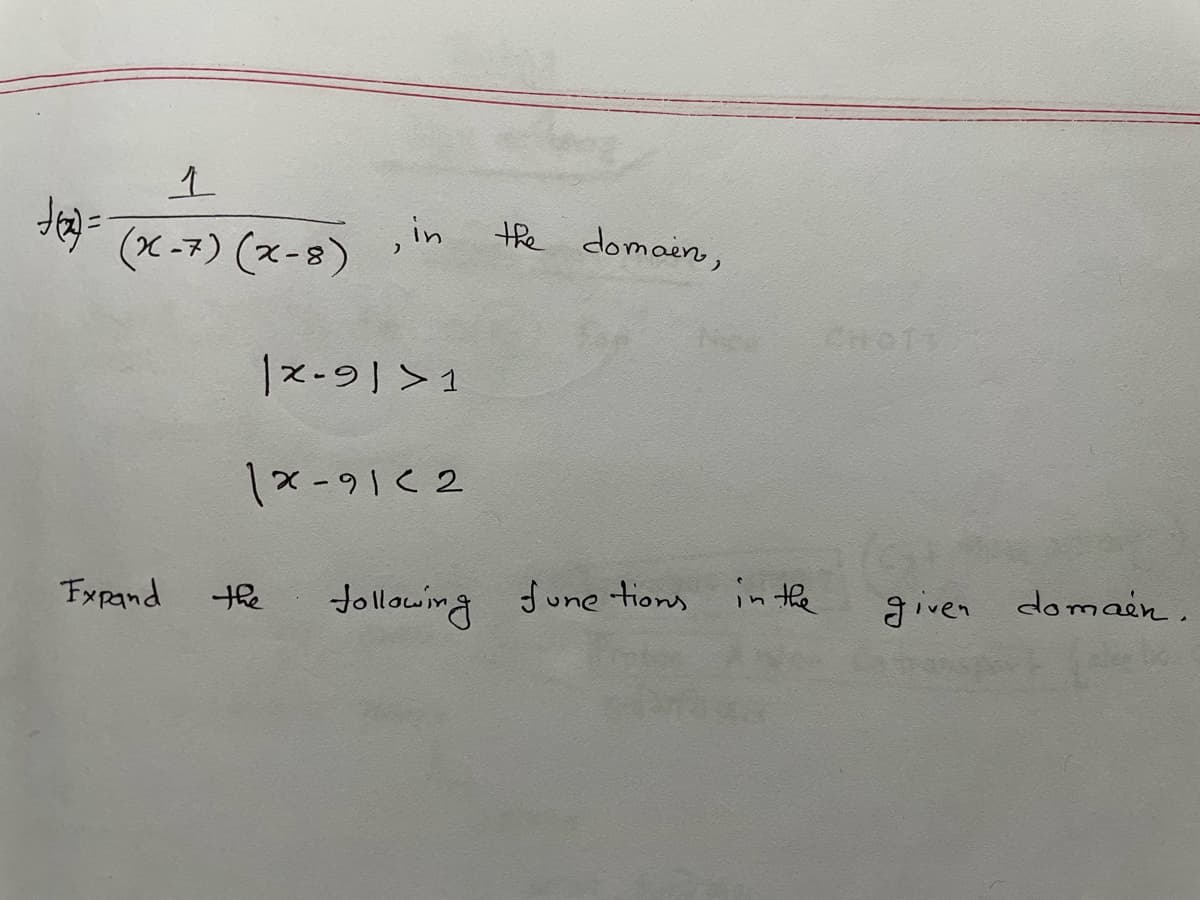 f(x) = 1 / (x-7) (x-8) , in the domain,
|x-9| > 1
|x-9| < 2
Expand the following functions in the given domain.